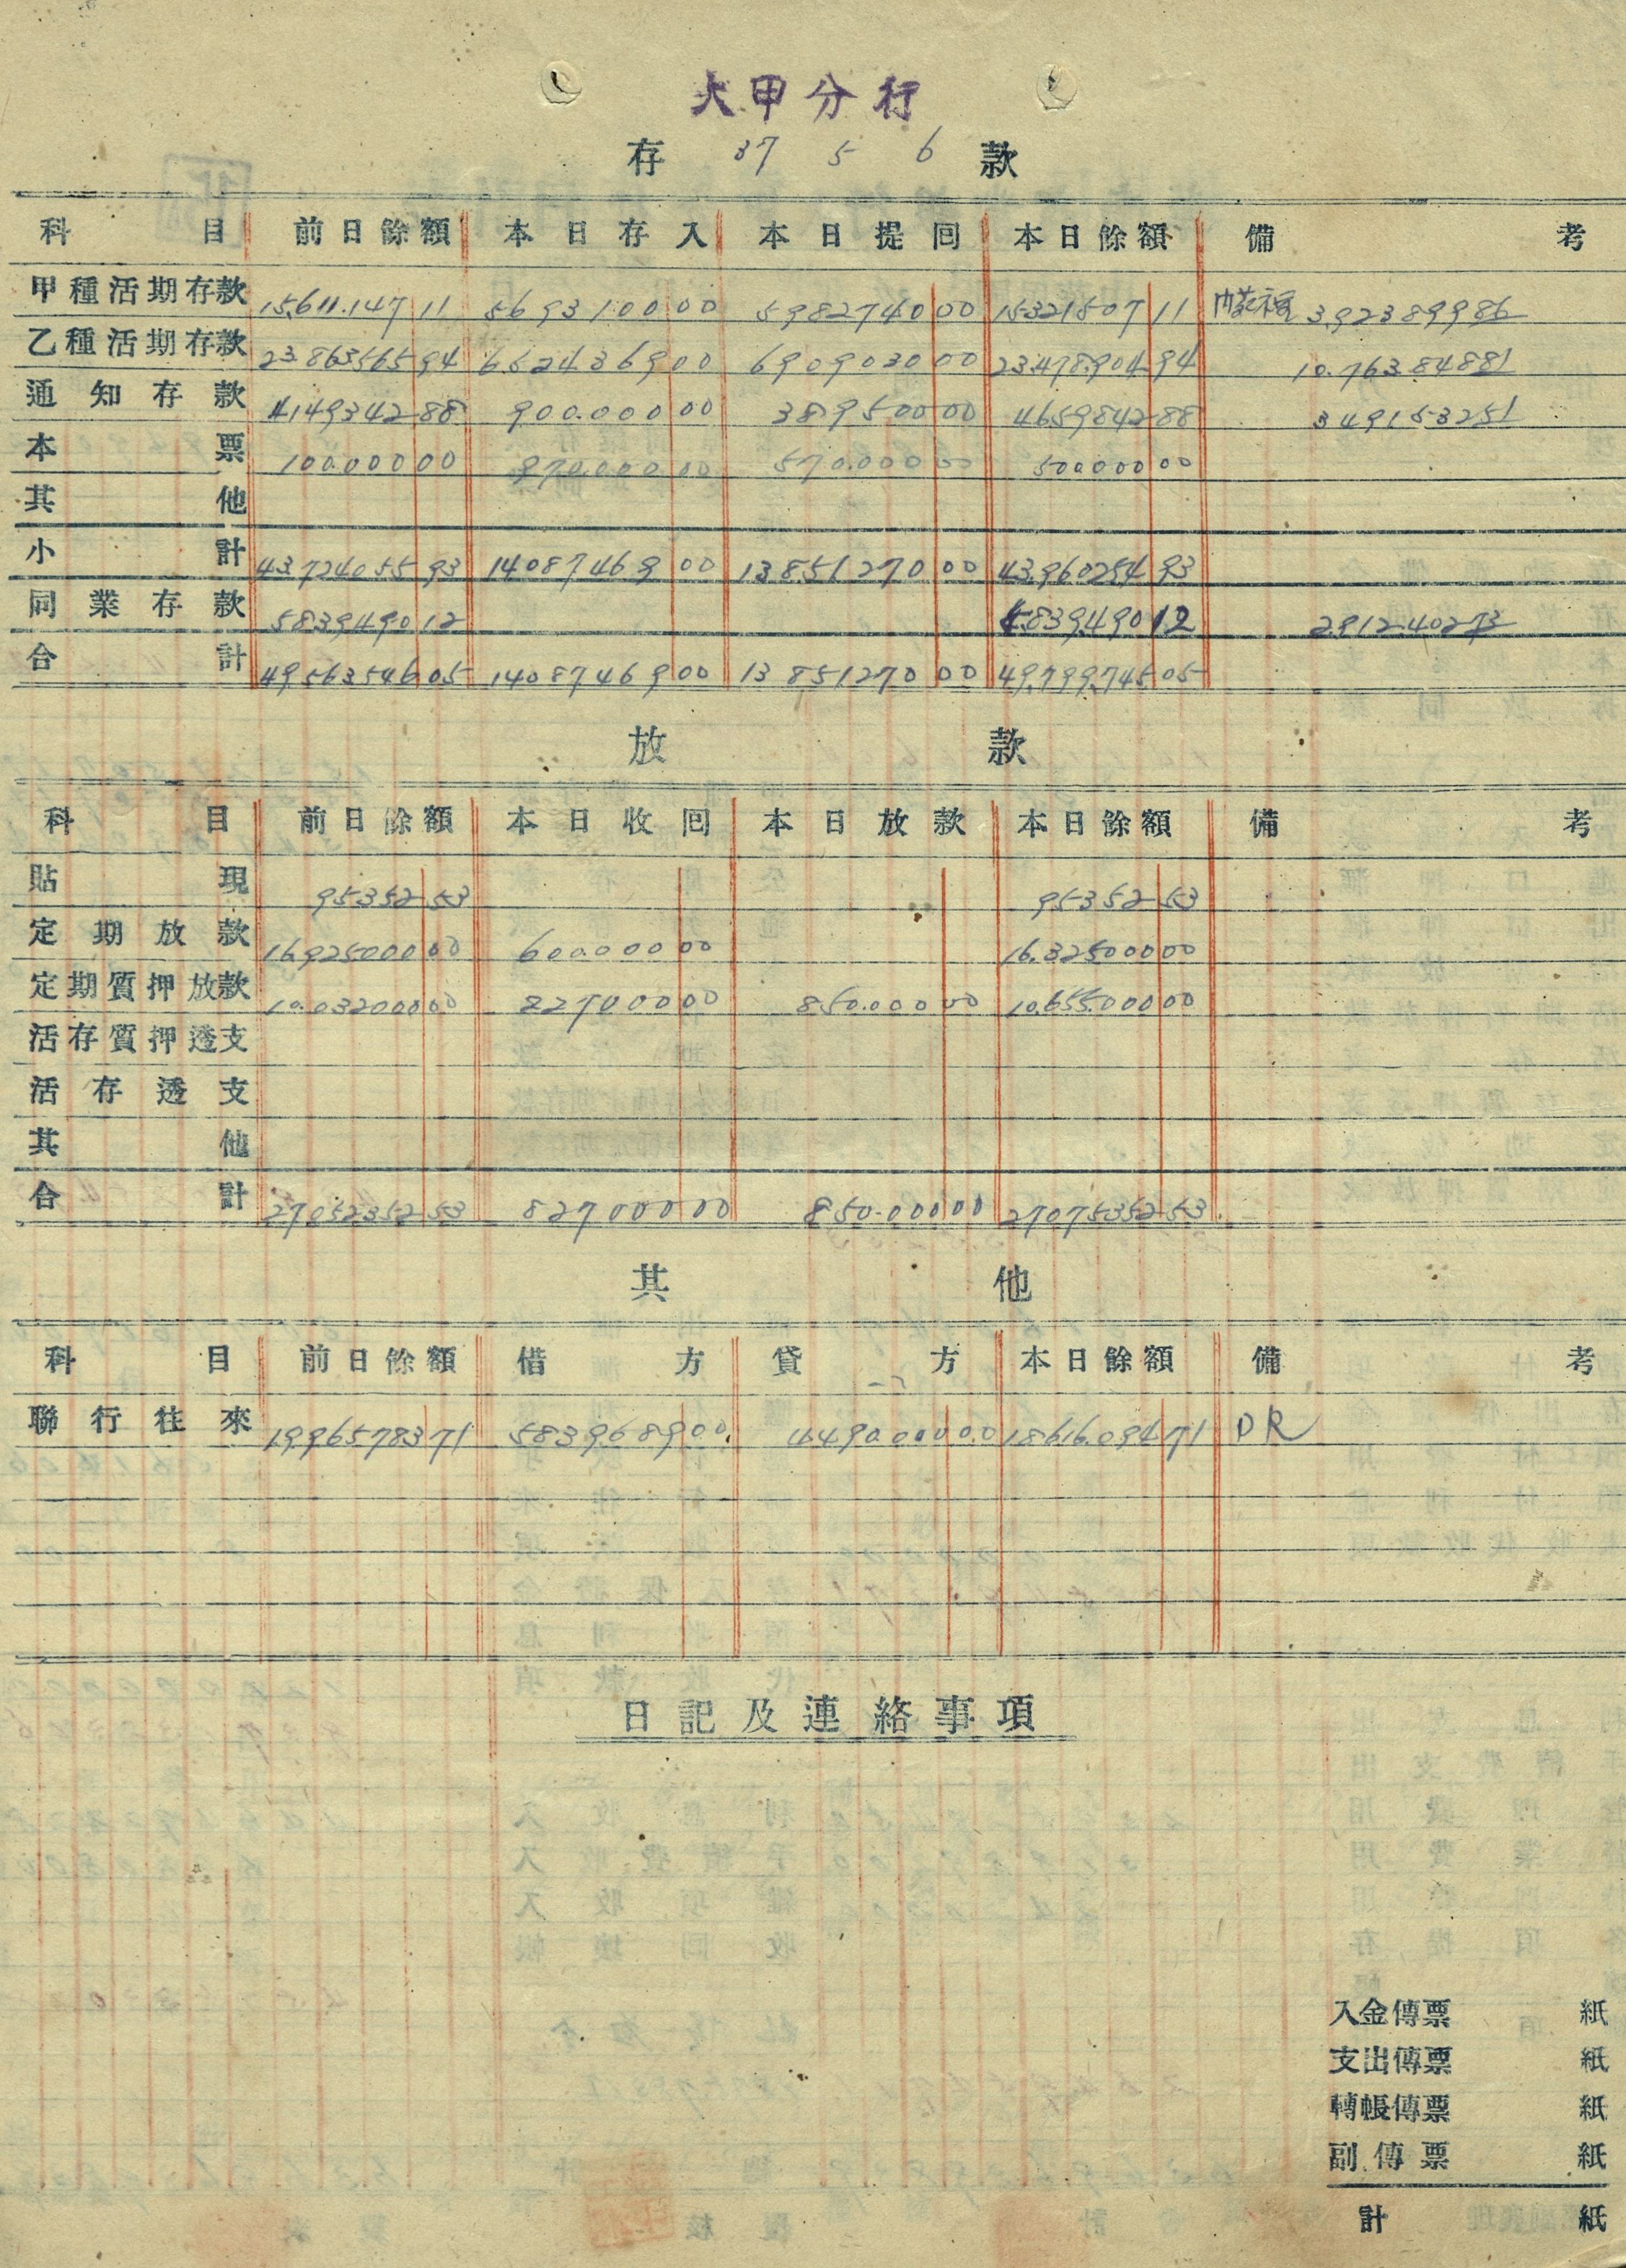 大甲分行
存 37 5 6 款
科目 前日餘額 本日存入 本日提回 本日餘額 備考
甲種活期存款 15,611,147 11 5693100 00 5982740 00 15321507 11 3,923899 86
乙種活期存款 23,863565 94 6524369 00 6909030 00 23,478,904 94 10,763848 81
通知存款 4149342 88 900,000 00 389500 00 4659842 88 3491532 51
本票 100,000 00 970,000 00 570,000 00 500000 00
其他
小計 43,724055 93 14087469 00 13851270 00 43,960254 93
同業存款 5839490 12 5839490 12 2912402 73
合計 49563546 05 14087469 00 13851270 00 49,799,745 05
放款
科目 前日餘額 本日收回 本日放款 本日餘額 備考
貼現 95352 53 95352 53
定期放款 16,925000 00 600,000 00 16,325000 00
定期質押放款 10,032000 00 227000 00 850,000 00 10,655,000 00
活存質押透支
活存透支
其他
合計 27052352 53 827000 00 850,000 00 27075352 53
其他
科目 前日餘額 借方 貸方 本日餘額 備考
聯行往來 19,965783 71 5839689 00 4,490,000 00 18616,094 71 DR
日記及連絡事項
入金傳票 紙
支出傳票 紙
轉帳傳票 紙
副傳票 紙
計 紙